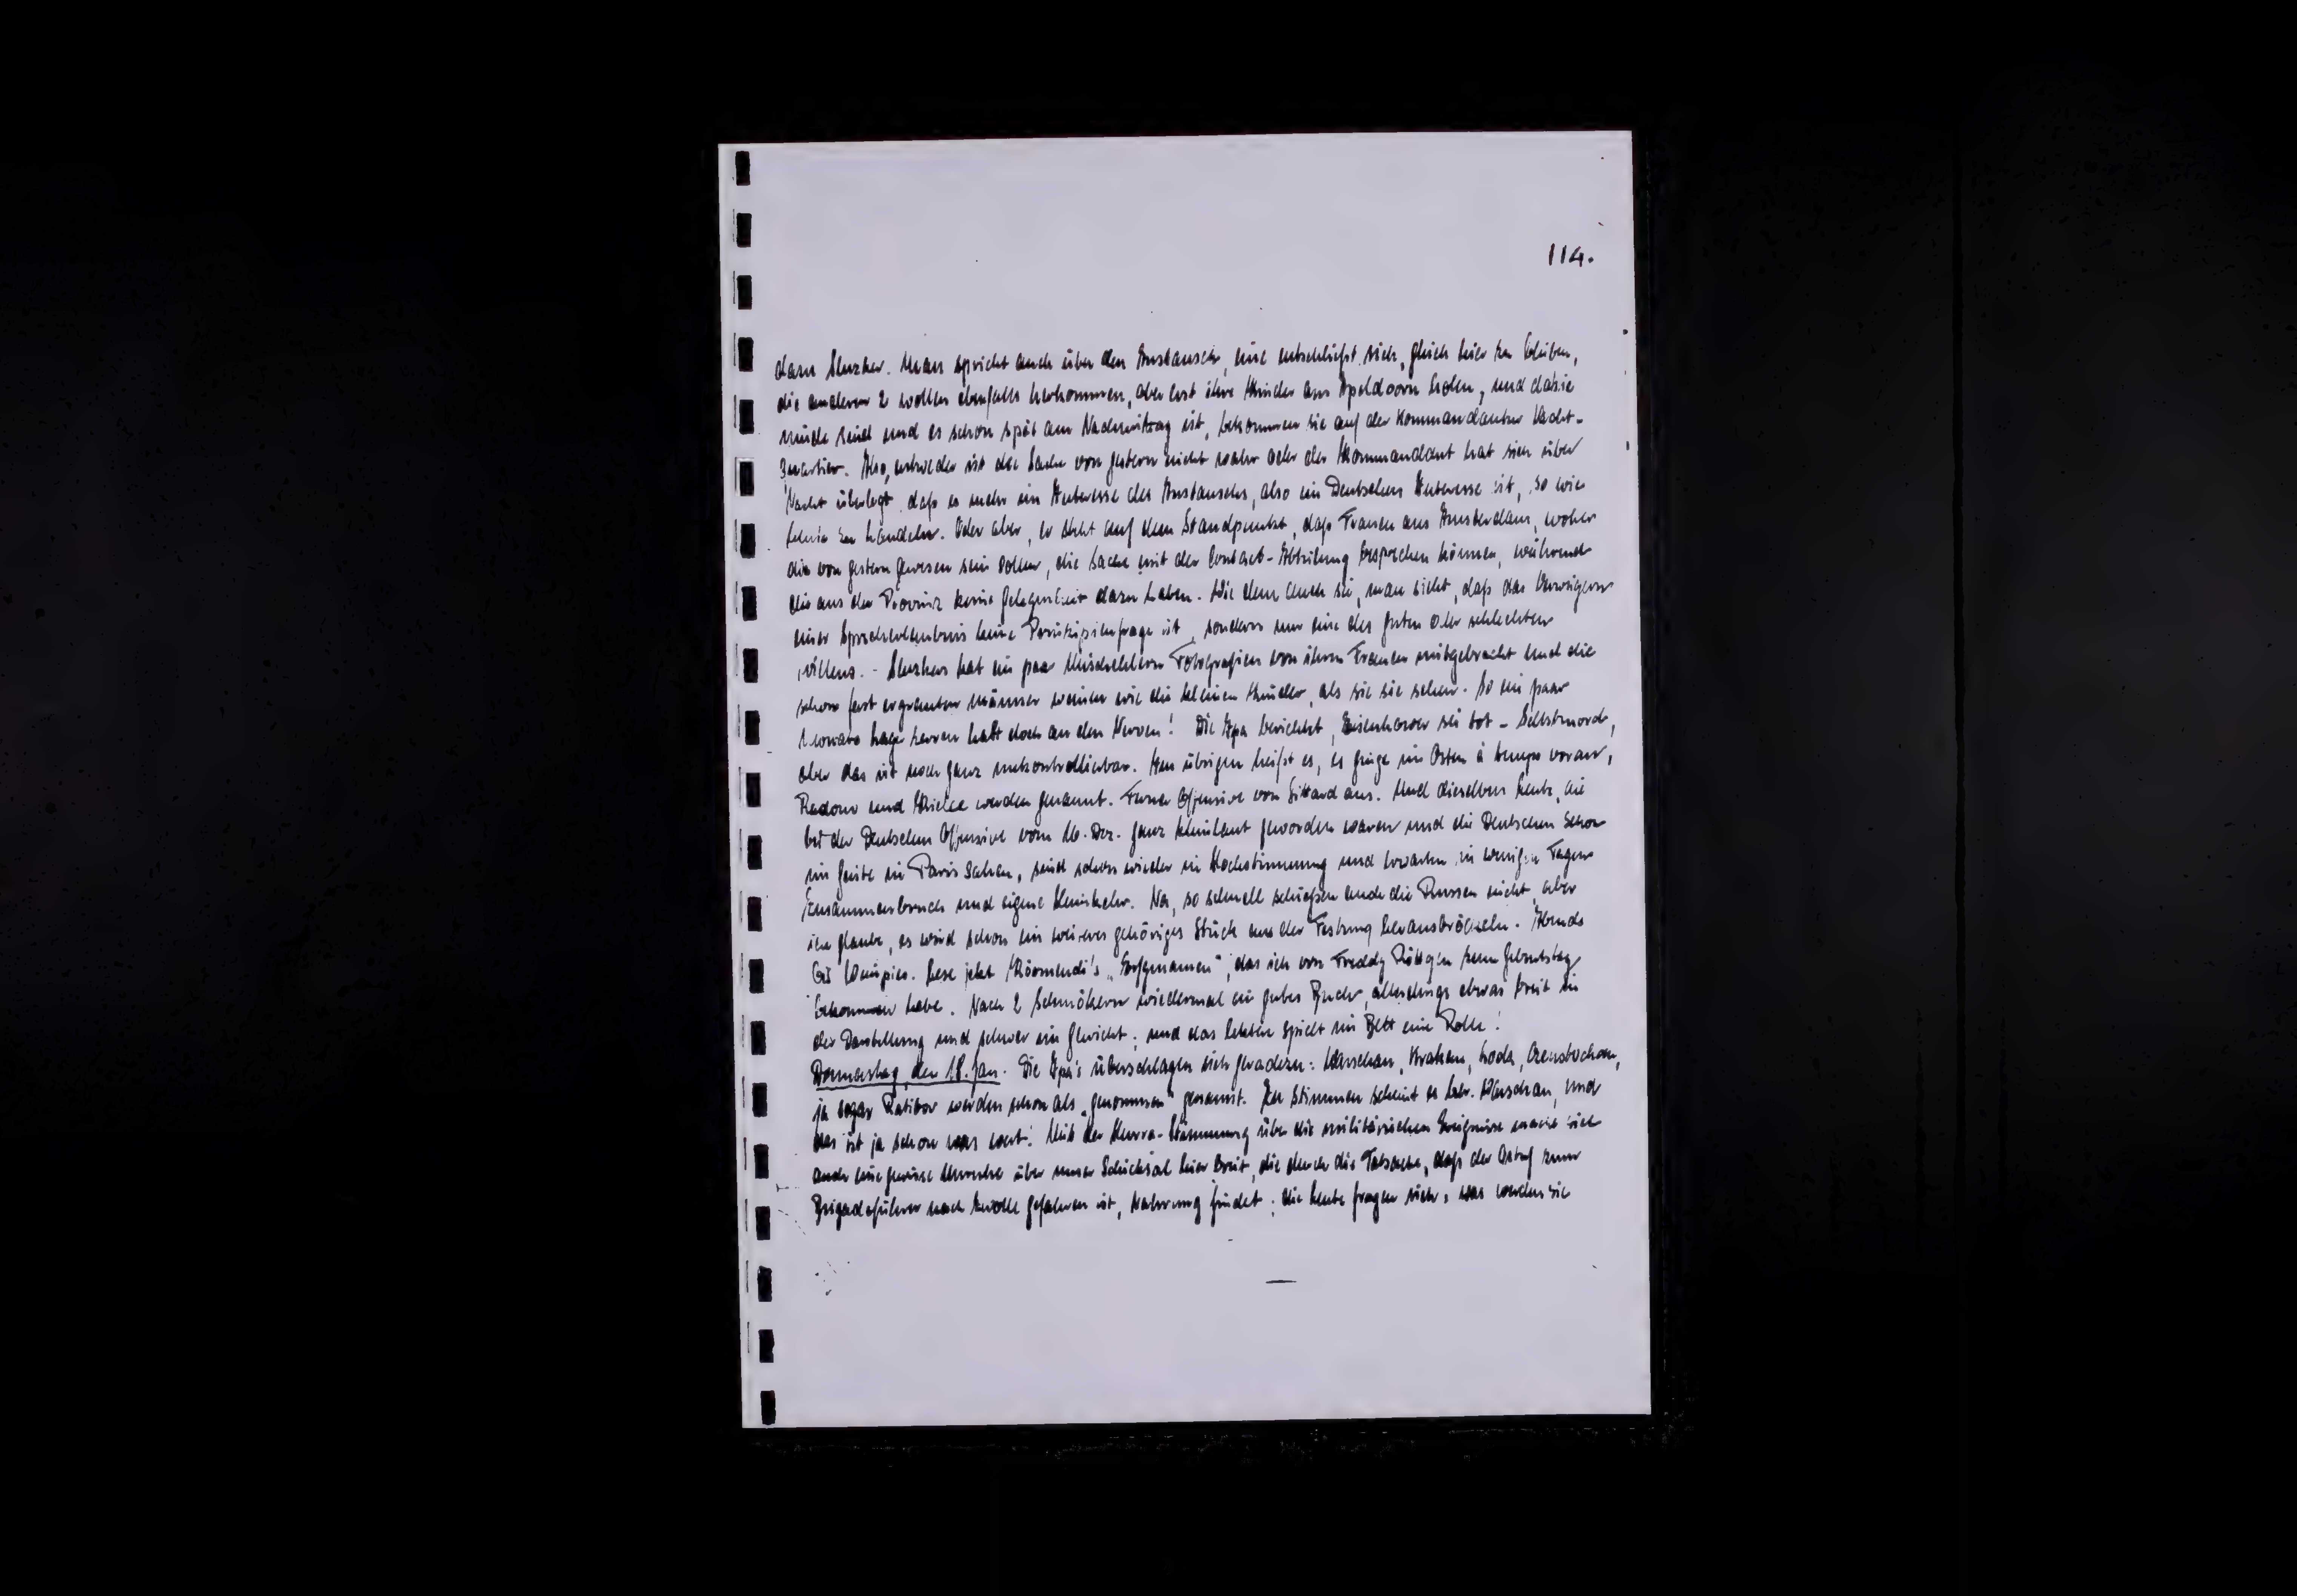 114.
dazu Sluzker. Man spricht auch über den Austausch, eine entschließt sich, gleich hier zu bleiben,
die anderen 2 wollen ebenfalls herkommen, aber erst ihre Kinder aus Apeldoorn holen, und da sie
müde sind und es schon spät am Nachmittag ist, bekommen sie auf der Kommandantur Nacht-
quartier. Also, entweder ist die Sache von gestern nicht wahr oder der Kommandant hat sich über
Nacht überlegt, daß es mehr im Interesse des Austauschs, also im Deutschen Interesse ist, so wie
heute zu handeln. Oder aber, er steht auf dem Standpunkt, daß Frauen aus Amsterdam, woher
die von gestern gewesen sein sollen, die Sache mit der Contact-Abteilung besprechen können, während
die aus der Provinz keine Gelegenheit dazu haben. Wie dem auch sei, man sieht, daß das Verweigern
einer Sprecherlaubnis keine Prinzipienfrage ist, sondern nur eine des guten oder schlechten
Willens. - Sluzker hat ein paar Mischehlern Fotografien von ihren Frauen mitgebracht und die
schon fast ergrauten Männer weinen wie die kleinen Kinder, als sie sie sehen. So ein paar
Monate Lager zerren halt doch an den Nerven! Die Ipa berichtet, Eisenhower sei tot - Selbstmord,
aber das ist noch ganz unkontrollierbar. Im übrigen heißt es, es ginge im Osten à tempo voran,
Radom und Kielce werden genannt. Ferner Offensive von Sittard aus. Und dieselben Leute, die
bei der Deutschen Offensive vom 16. Dez. ganz kleinlaut geworden waren und die Deutschen schon
im Geiste in Paris sahen, sind schon wieder in Hochstimmung und erwarten in wenigen Tagen
Zusammenbruch und eigene Heimkehr. Na, so schnell schießen auch die Russen nicht, aber
ich glaube, es wird schon ein weiteres gehöriges Stück aus der Festung herausbröckeln. Abends
bei Wempies. Lese jetzt Körmendi's „ das ich von Freddy Röttgen zum Geburtstag
bekommen habe. Nach 2 Schmökern wiedermal ein gutes Buch, allerdings etwas breit in
der Darstellung und schwer im Gewicht; und das letztere spielt im Bett eine Rolle!
Donnerstag, den 18. Jan. Die Ipa's überschlagen sich geradezu: Warschau, Krakau, Lodz, Czenstochau,
ja sogar Ratibor werden schon als „genommen" genannt. Zu stimmen scheint es betr. Warschau, und
das ist ja schon was wert! Mit der Hurra-Stimmung über die militärischen Ereignisse macht sich
auch eine gewisse Unruhe über unser Schicksal hier breit, die durch die Tatsache, daß der Ostuf zum
Brigadeführer nach Zwolle gefahren ist, Nahrung findet; die Leute fragen sich, was werden sie